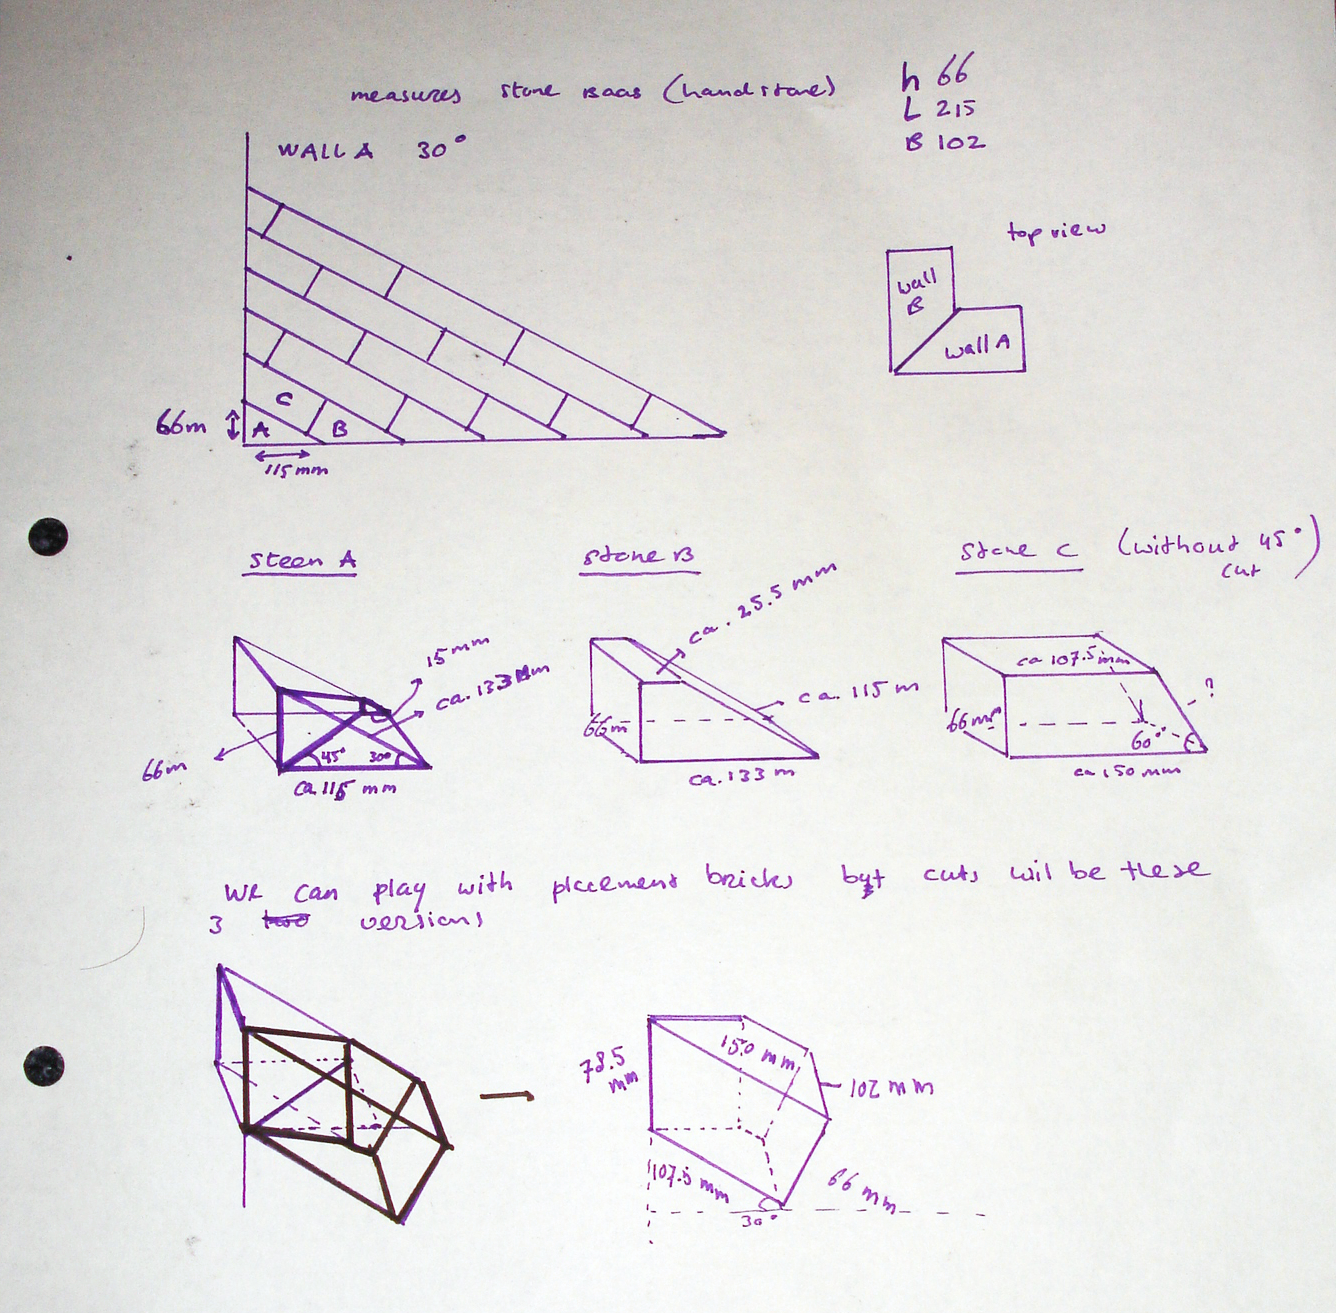 measures stone Baas (handstone)
h 66
L 215
B 102
WALL A 30°
top view
wall
B
wall A
C
66m
A
B
115 mm
Steen A
Stone B
Stone C (without 45°
cut)
ca. 25.5 mm
15mm
ca. 133 mm
ca. 115 m
ca 107.5 mm
?
66m
66m
66m
45°
30°
60°
ca. 115 mm
ca. 133 m
ca 150 mm
WE can play with placement bricks byt cuts wil be these
3 two versions
78.5
mm
150 mm
102 mm
107.5 mm
66 mm
30°